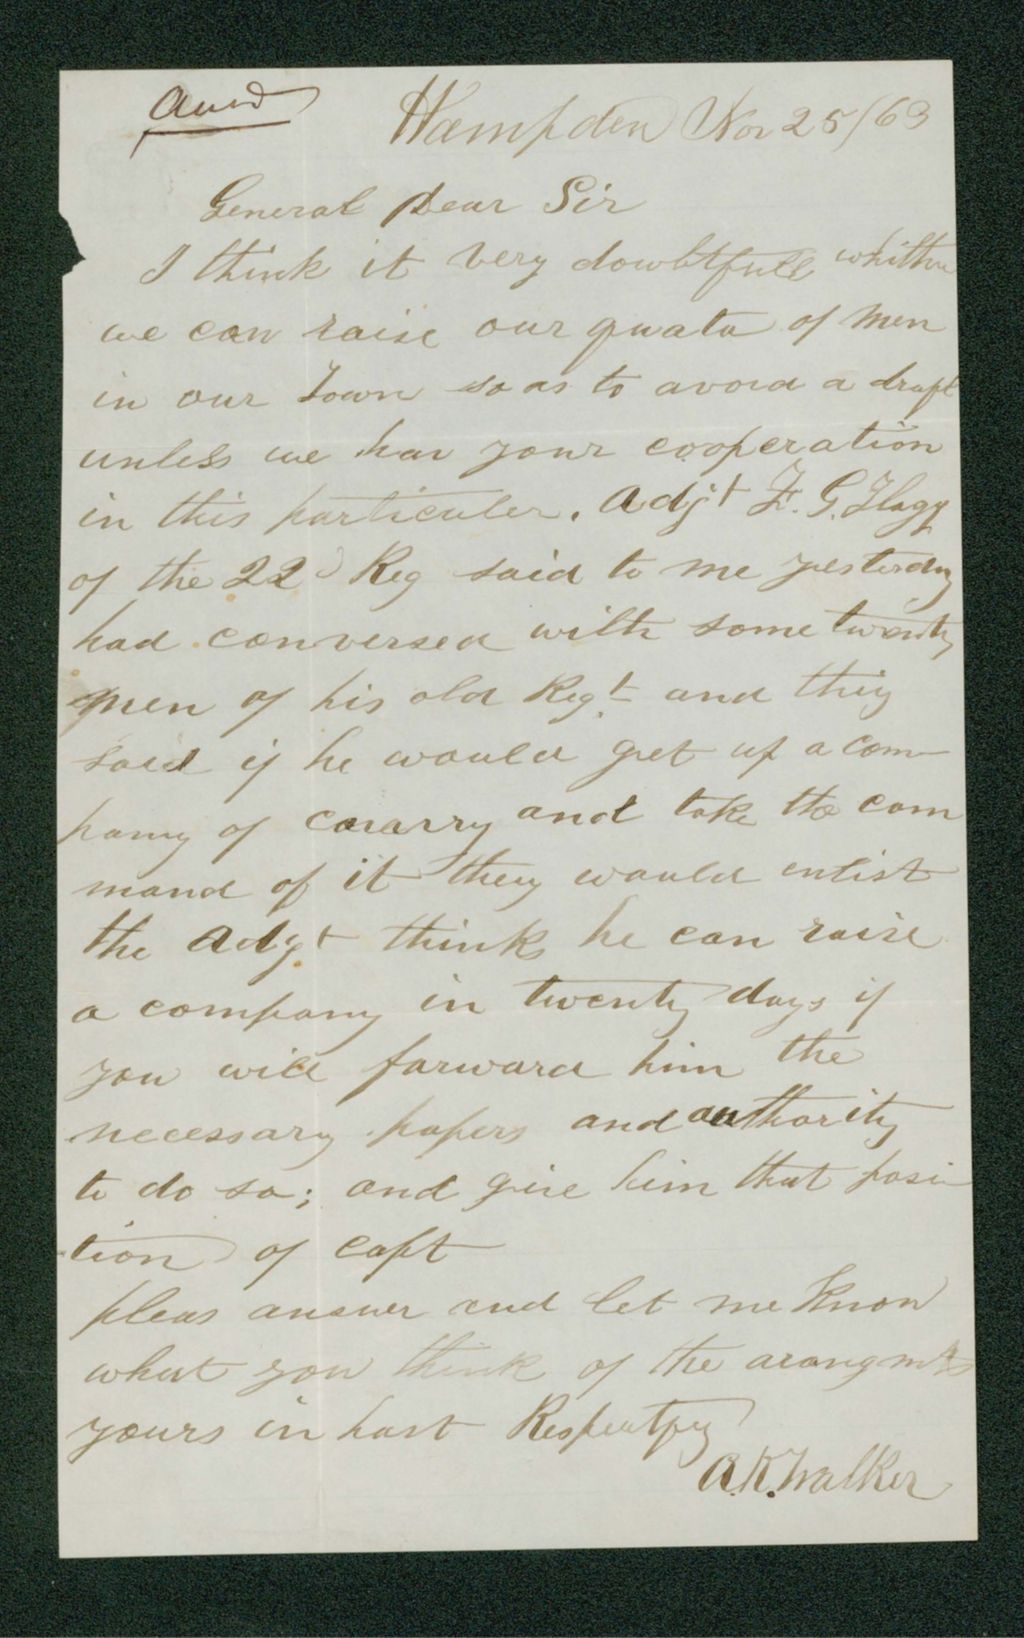 Hampden Nov 25/63
General Dear Sir
I think it very dowbtfull whither
we can raise our quata of men
in our Town so as to avoid a draft
unless we hav your cooperation
in this particuler. Adjt F. G. Flagg
of the 22d Reg said to me yesterday
had conversed with some twenty
men of his old Regt and they
said if he would get up a com
pany of cavarry and take the com
mand of it they would enlist
the Adgt think he can raise
a company in twenty days if
you will forward him the
necessary papers and authority
to do so; and give him that posi
tion of capt
pleas answer and let me know
what you think of the arangmts
yours in hast Respectfy
A. K. Walker